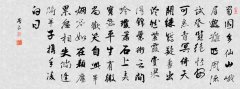 蜀國多仙山峨
眉邈難匹周流
試登覽絕怪安
可悉青冥倚天
開彩錯疑畫出
泠然紫霞賞果
得錦囊術雲間
吟瓊簫石上弄
寶瑟平生有微
尚歡笑自此畢
煙容如在顏塵
累忽相失倘逢
騎羊子攜手凌
白日